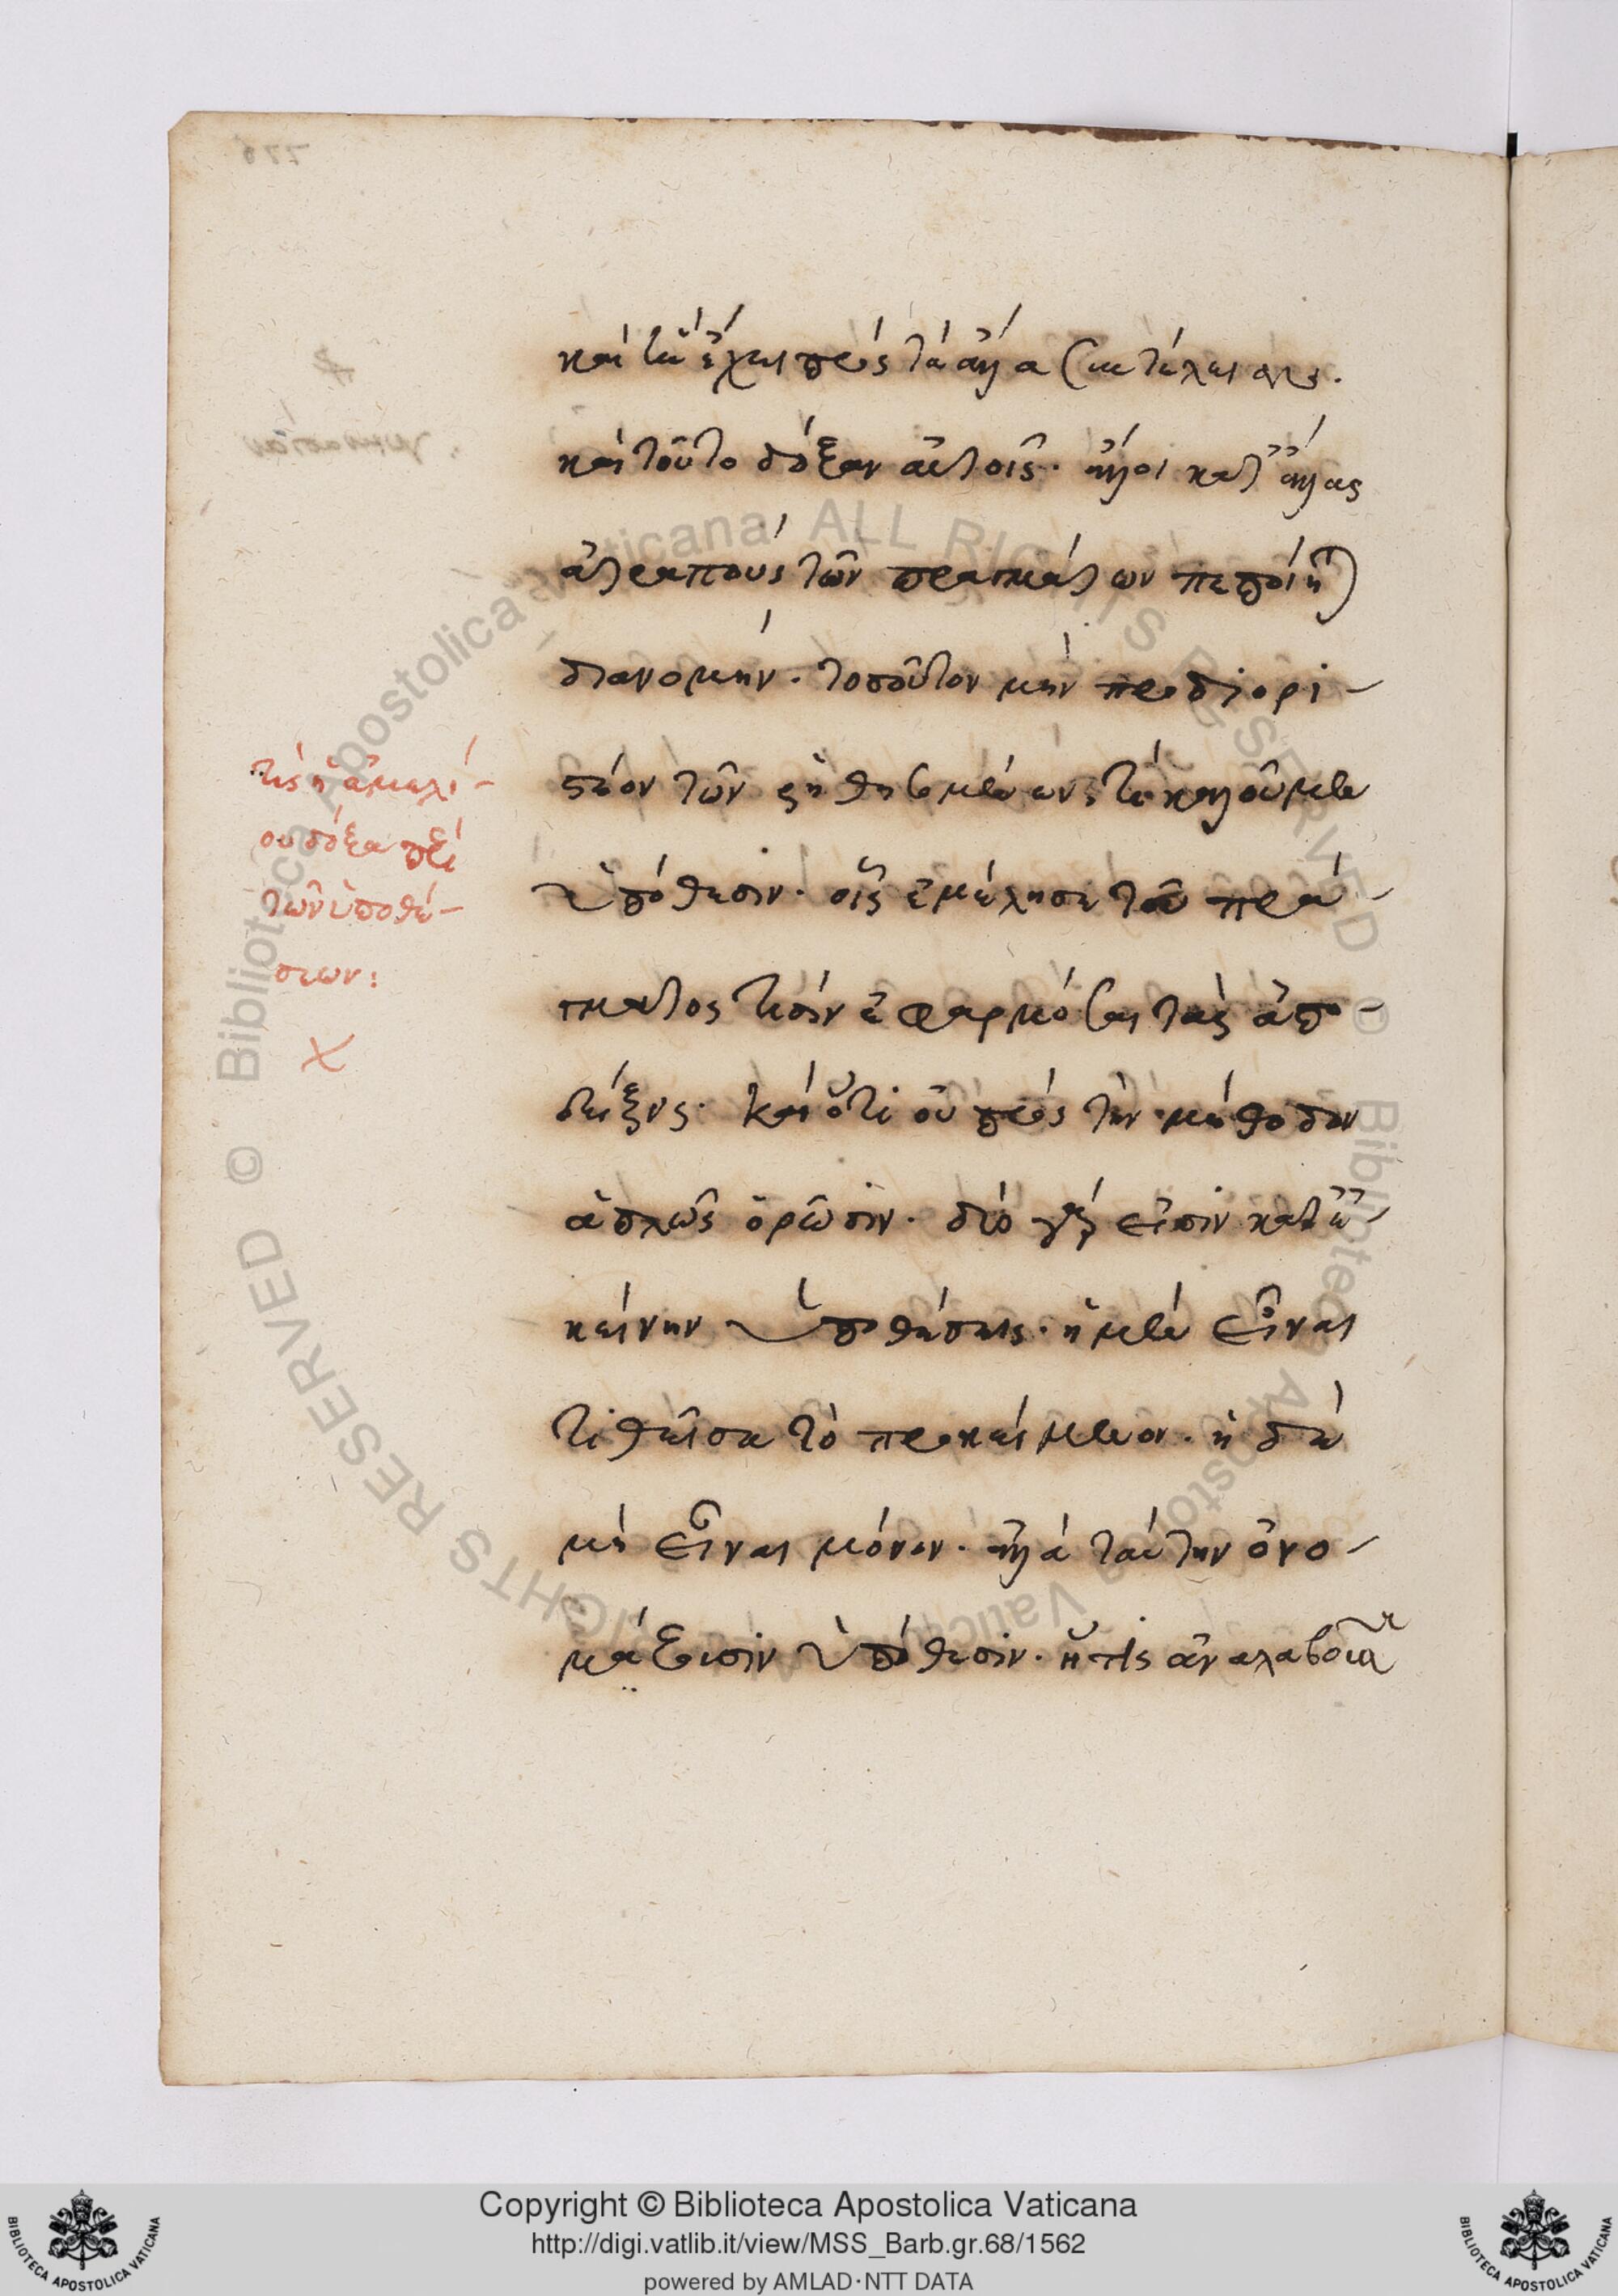 καὶ τῷ ἔχει πρὸς τὰ ἄλλα
καὶ τοῦτο δόξαν αὐτοῖς· ἄλλοι κατ' ἄλλας
ἀτραποὺς τῶν πραγμάτων πεποίην)
διανομήν. τοσοῦτον μὴν προδιορι-
στέον τῶν ῥηθησομένων, τί καλοῦμεν
ὑπόθεσιν. οἷς ἐμέλησε τοῦ πρά-
γματος τισὶν ἐφαρμόσαι τὰς ἀπο-
δείξεις. καὶ ὅτι οὐ πρὸς τὴν μέθοδον
ἁπλῶς ὁρῶσιν. δύο γάρ εἰσιν κατ' ἐ-
κείνην ὑποθέσεις. ἡ μὲν εἶναι
τιθεῖσα τὸ προκείμενον. ἡ δὲ
μὴ εἶναι μόνον. ἀλλὰ ταύτην ὀνο-
μάζουσιν ὑπόθεσιν. ἥτις ἀναλαβοῦσα
τίς ἡ ἀμελί-
ου δόξα περὶ
τῶν ὑποθέ-
σεων:
Copyright © Biblioteca Apostolica Vaticana
http://digi.vatlib.it/view/MSS_Barb.gr.68/1562
powered by AMLAD·NTT DATA
BIBLIOTECA APOSTOLICA VATICANA
BIBLIOTECA APOSTOLICA VATICANA
© Biblioteca Apostolica Vaticana ALL RIGHTS RESERVED
© Biblioteca Apostolica Vaticana ALL RIGHTS RESERVED